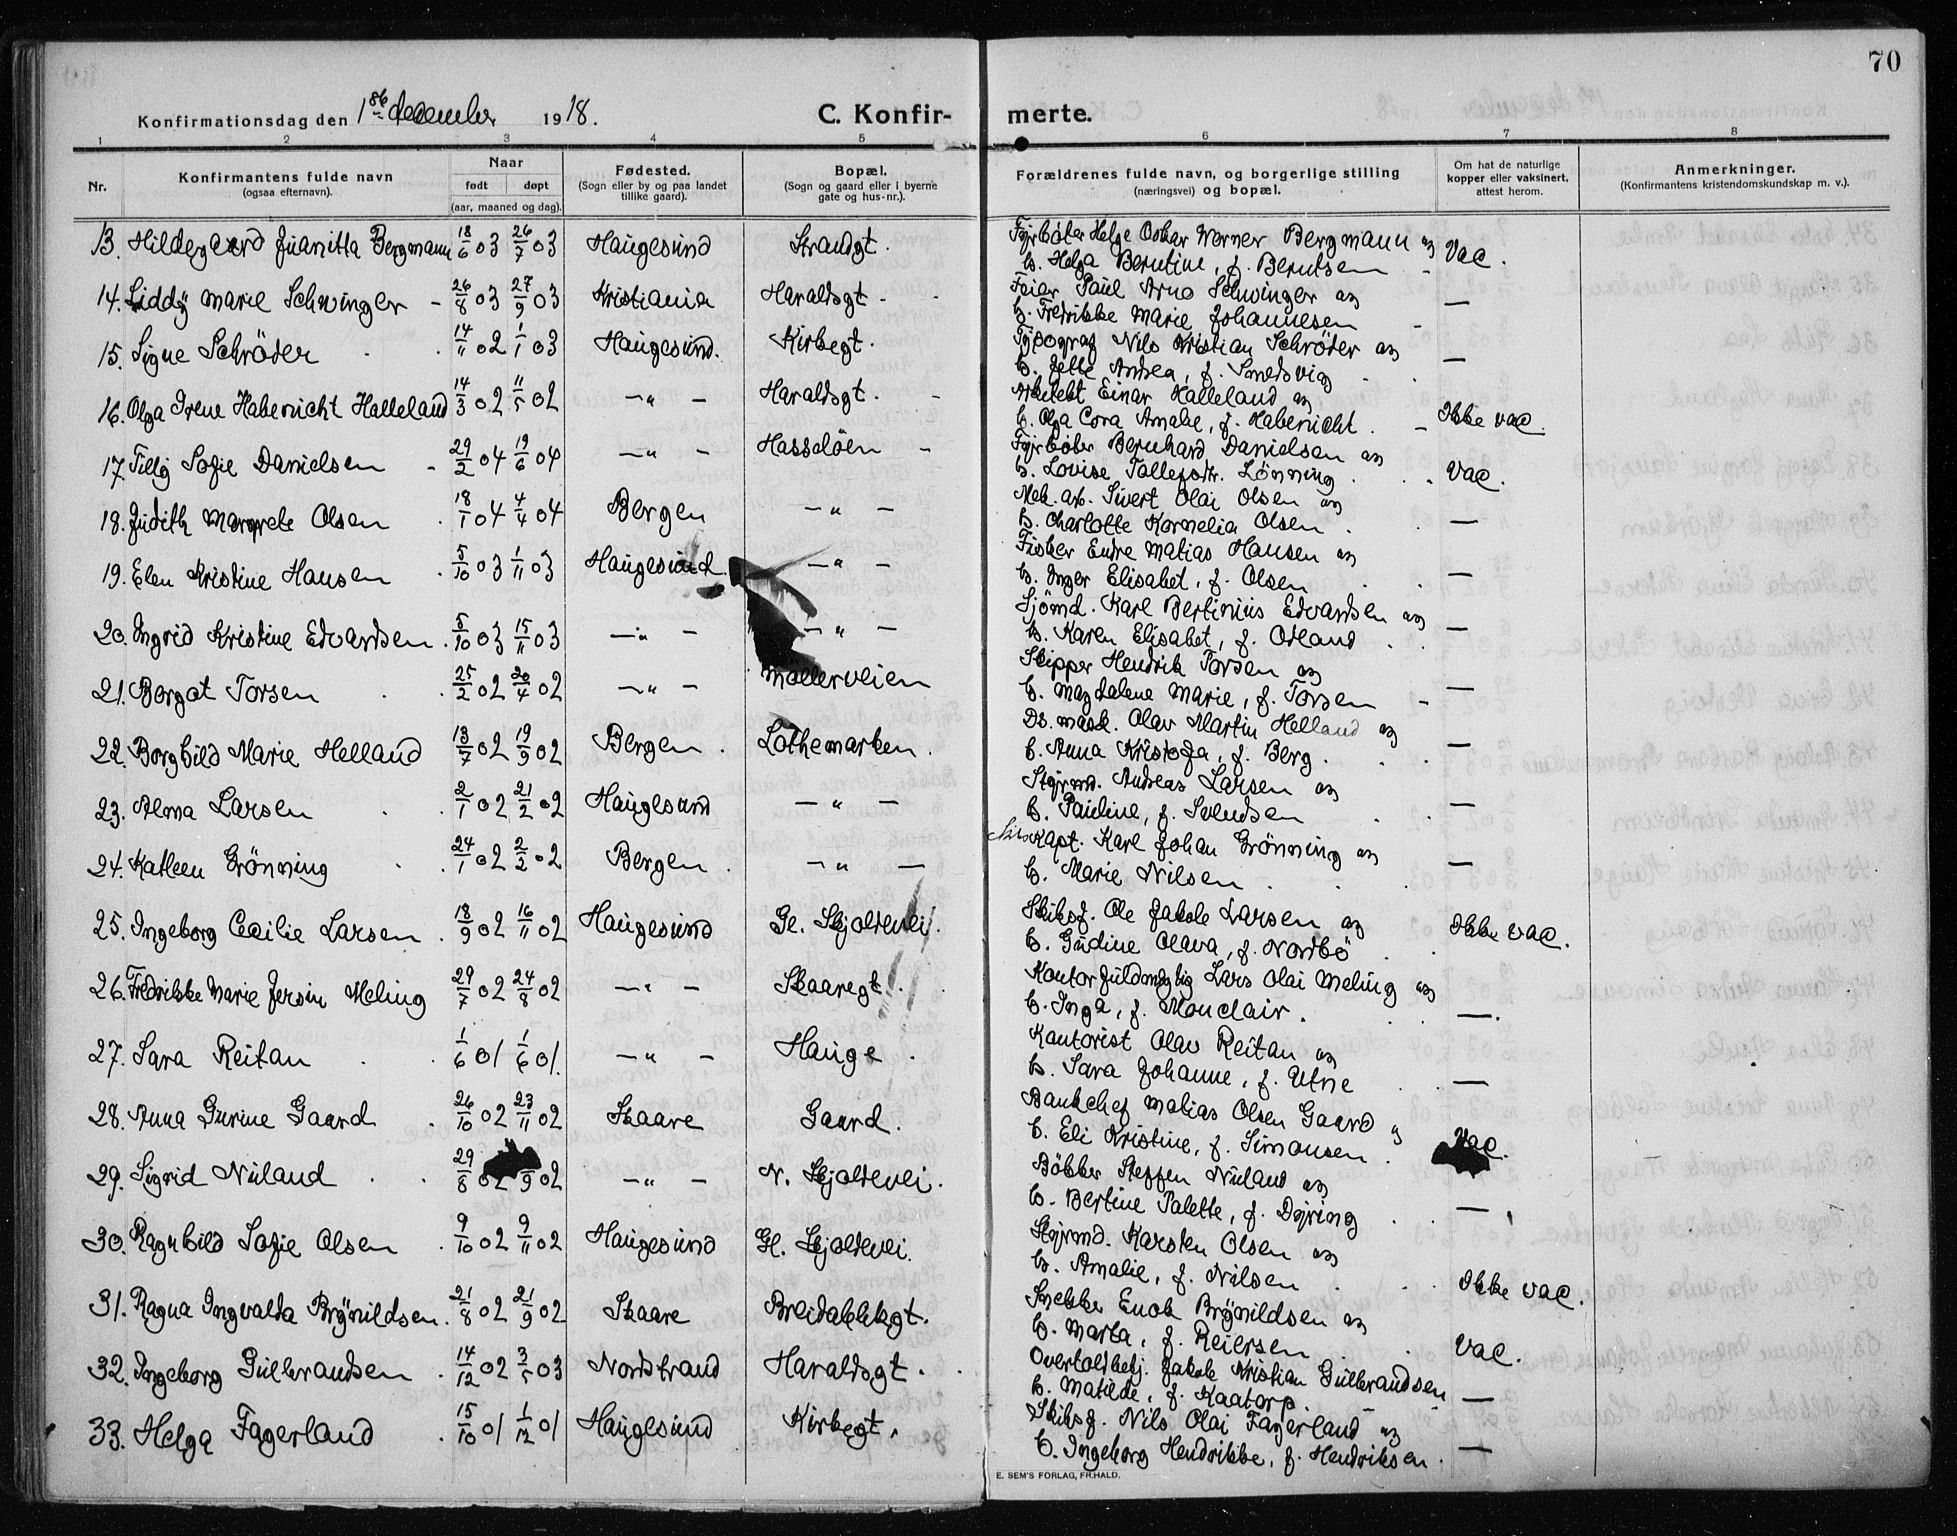 70
Konfirmationsdag den 1ste december 1918.
C. Konfirmerte.
1 2 3 4 5 6 7 8
Nr. Konfirmantens fulde navn (ogsaa efternavn). Naar født døpt (aar, maaned og dag). Fødested. (Sogn eller by og paa landet tillike gaard). Bopæl. (Sogn og gaard eller i byerne gate og hus-nr.). Forældrenes fulde navn, og borgerlige stilling (næringsvei) og bopæl. Om hat de naturlige kopper eller vaksinert, attest herom. Anmerkninger. (Konfirmantens kristendomskundskap m. v.).
13. Hildegaerd Juanitta Bergmann 18/6 03 26/7 03 Haugesund Strandgt. Fyrbøter Helge Oskar Werner Bergmann og
H. Helga Berntine, f. Berntsen Vac.
14. Liddy Marie Schwinger 26/8 03 27/9 03 Kristiania Haraldsgt. Feier Paul Arno Schwinger og
H. Fredrikke Marie Johannesen —
15. Signe Schröder 14/11 02 1/1 03 Haugesund. Kirkegt. Typograf Nils Kristian Schröder og
H. Jette Andrea, f. Smedsvig —
16. Olga Irene Habenicht Halleland 14/3 02 11/5 02 —"— Haraldsgt. Arkitekt Einar Halleland og
H. Olga Cora Amalie, f. Habenicht. Ikke vac.
17. Tilly Sofie Danielsen 29/2 04 19/6 04 —"— Hasseløen Fyrbøter Bernhard Danielsen og
H. Lovise Tallefsdtr. Lønning Vac.
18. Judith Margrete Olsen 18/1 04 4/4 04 Bergen —"— Mek. arb. Sivert Olai Olsen og
H. Charlotte Kornelia Olsen —
19. Elen Kristine Hansen 5/10 03 1/11 03 Haugesund. —"— Fisker Endre Matias Hansen og
H. Inger Elisabet, f. Olsen —
20. Ingrid Kristine Edvardsen 5/10 03 15/11 03 —"— —"— Sjömd. Karl Bertinius Edvardsen og
H. Karen Elisabet, f. Odland —
21. Bergot Torsen 25/2 02 20/4 02 —"— Møllerveien Skipper Hendrik Torsen og
H. Magdalene Marie, f. Torsen —
22. Borghild Marie Helland 13/7 02 19/9 02 Bergen. Lothemarken. Ds. mask. Olav Martin Helland og
H. Anna Kristofa, f. Berg. —
23. Alma Larsen 2/1 02 21/2 02 Haugesund —"— Styrmd. Andreas Larsen og
H. Pauline, f. Svendsen —
24. Katleen Grönning 24/1 02 2/2 02 Bergen —"— Kapt. Karl Johan Grönning og
H. Marie Nilsen —
25. Ingeborg Cecilie Larsen 18/9 02 16/11 02 Haugesund Gl. Skjoldevei. Skibsf. Ole Jakob Larsen og
H. Gudine Olava, f. Nordbö Ikke vac.
26. Fredrikke Marie Jersin Meling 29/7 02 24/8 02 —"— Skaaregt. Kontorfuldmegtig Lars Olai Meling og
H. Inga, f. Monclair. —
27. Sara Reitan 1/6 01 1/6 01. —"— Hauge. Kontorist Olav Reitan og
H. Sara Johanne, f. Utne —
28. Anna Gurine Gaard 26/10 02 23/11 02 Skaare Gaard. Bankchef Matias Olsen Gaard og
H. Eli Kristine, f. Simonsen. Vac.
29. Sigrid Nuland 29/8 02 /9 02 —"— N. Skjoldevei. Bøkker Steffen Nuland og
H. Bertine Talette, f. Dyring —
30. Ragnhild Sofie Olsen 9/10 02 9/11 02 Haugesund Gl. Skjoldevei. Styrmd. Karsten Olsen og
H. Amalie, f. Nilsen Ikke vac.
31. Ragna Ingvalda Brynildsen. 21/8 02 21/9 02 Skaare Breidablikgt. Snekker Enok Brynildsen og
H. Marta, f. Reiersen Vac.
32. Ingeborg Gulbrandsen 14/12 02 3/5 03 Nordstrand Haraldsgt. Overtoldbetj. Jakob Kristian Gulbrandsen
H. Matilde, f. Kaatorp. —
33. Helga Fagerland 15/10 01 1/12 01 Haugesund Kirkegt. Skibsf. Nils Olai Fagerland og
H. Ingeborg Hendrikke, f. Hendriksen. —
E. SEM'S FORLAG, FR.HALD.